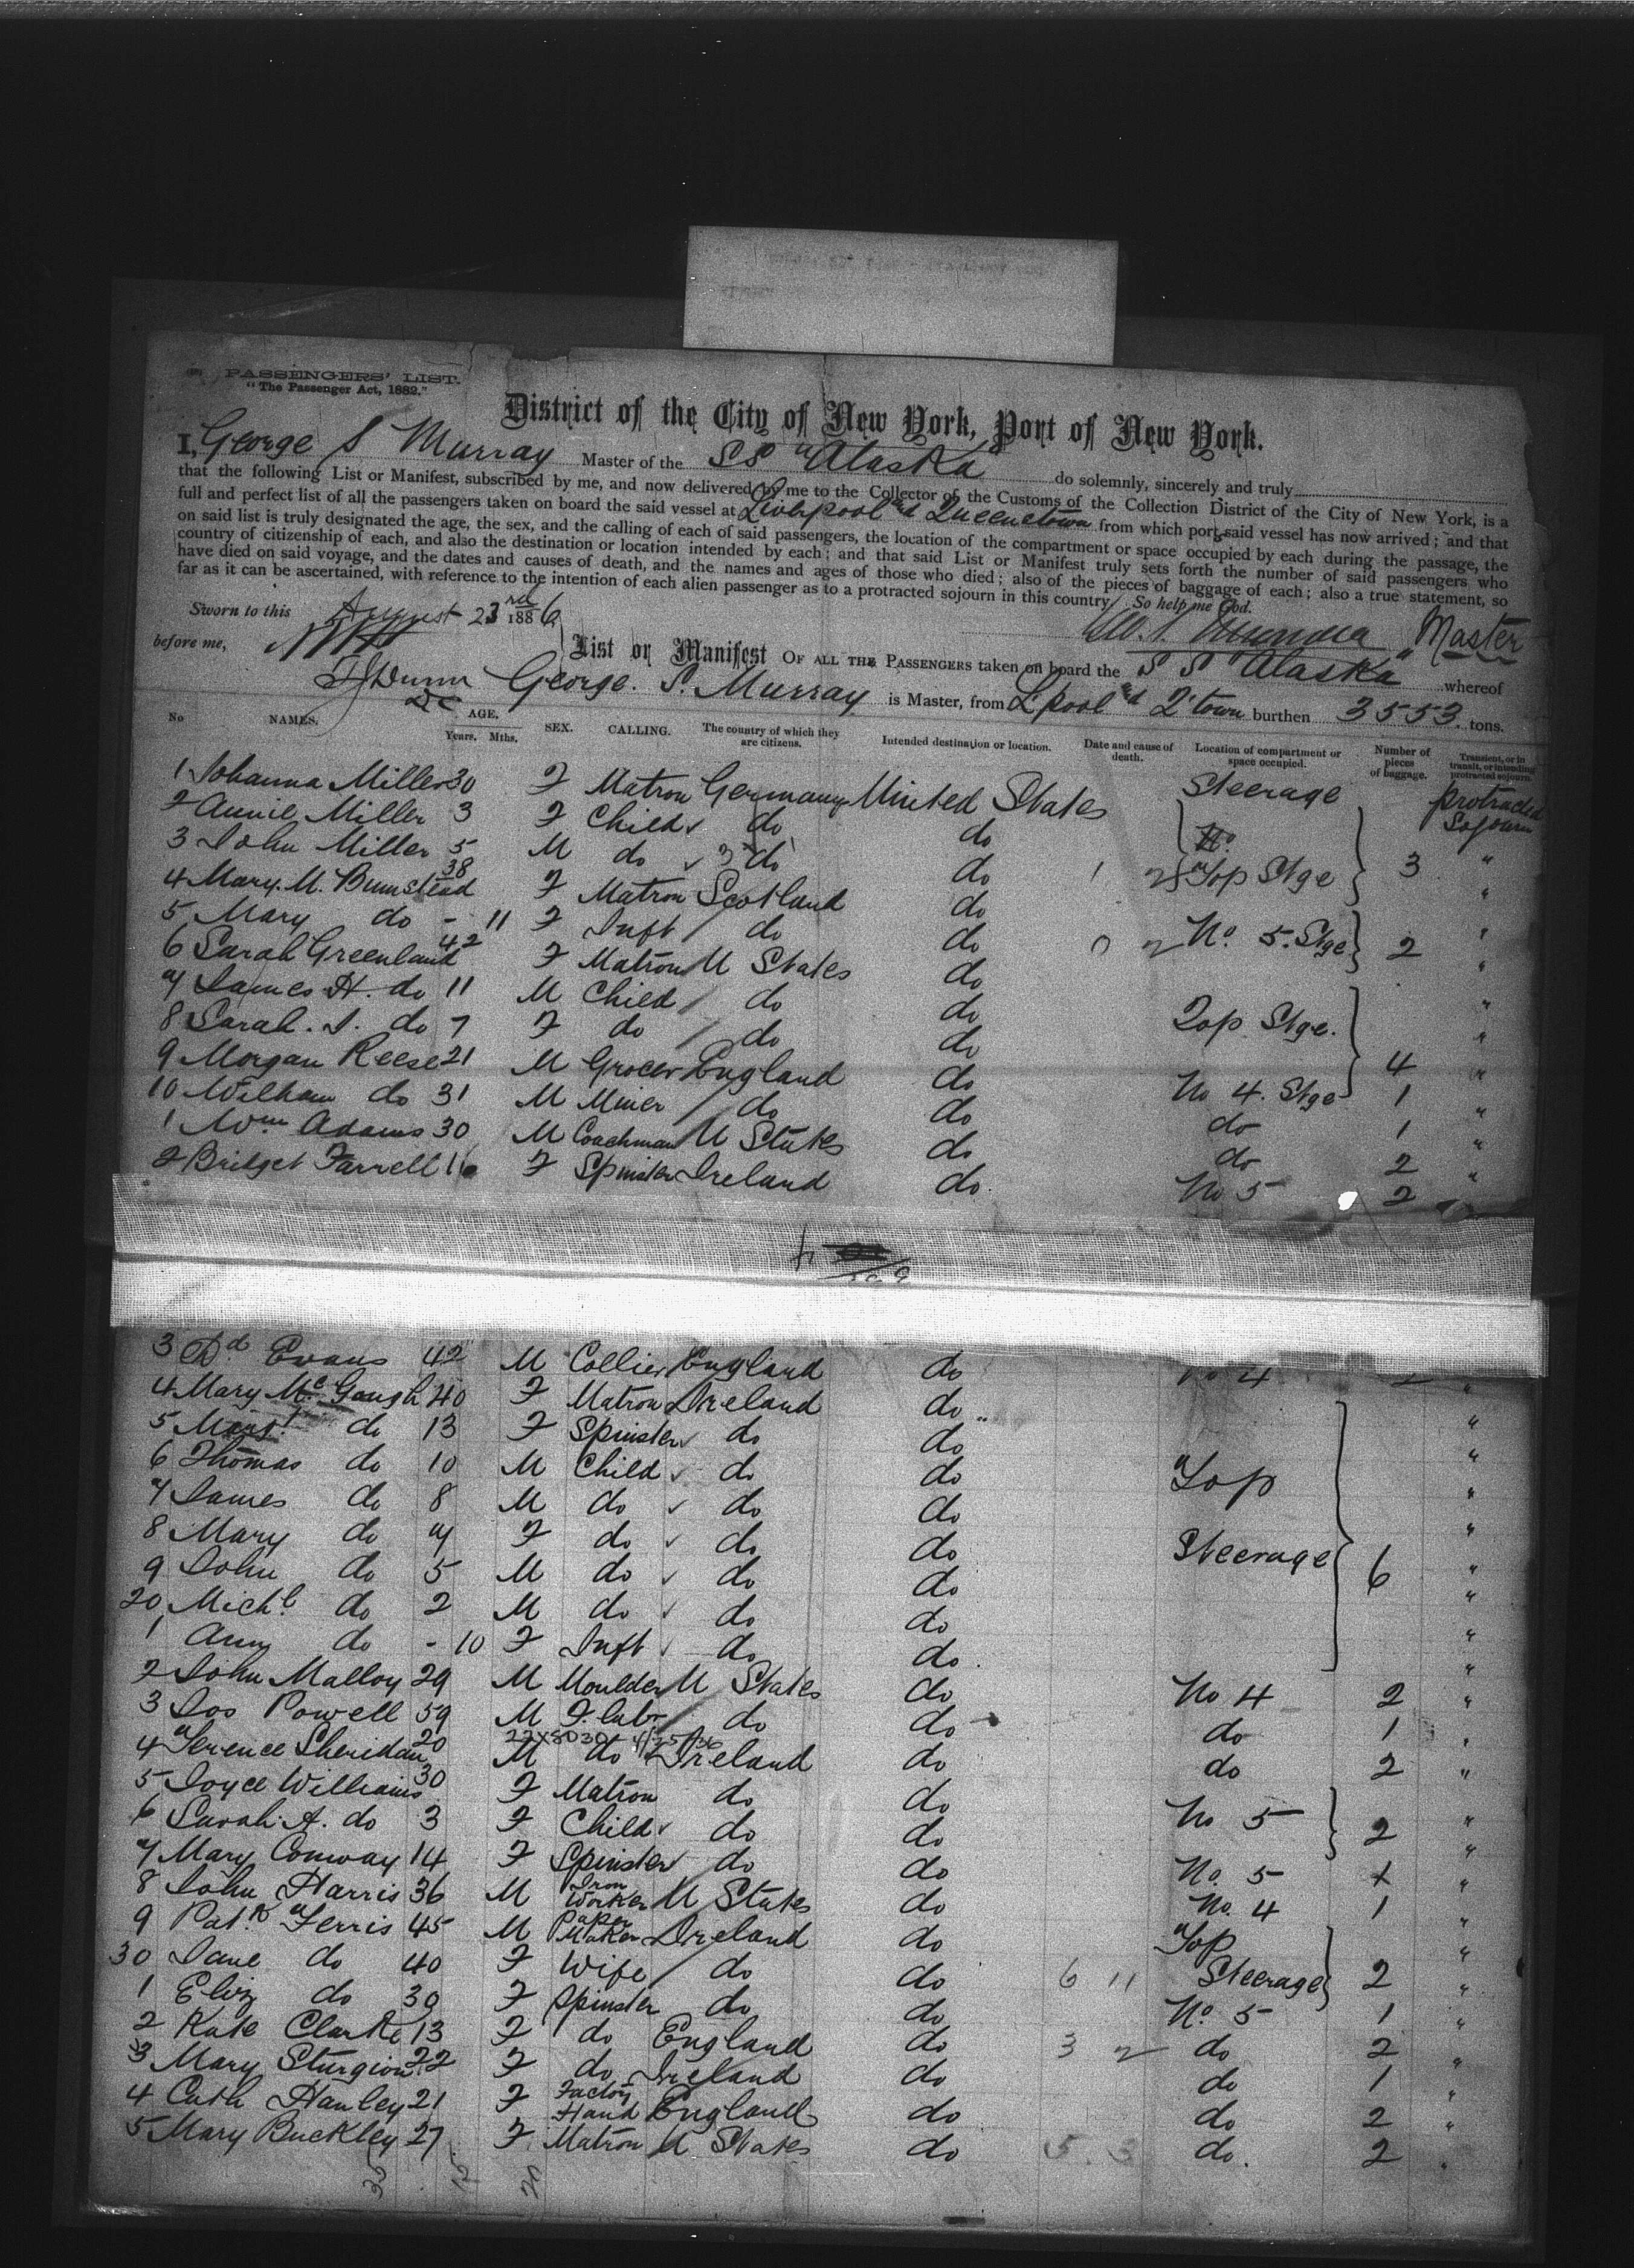 PASSENGERS' LIST.
"The Passenger Act, 1882."
District of the City of New York, Port of New York.
I, George S Murray Master of the SS "Alaska" do solemnly, sincerely and truly
that the following List or Manifest, subscribed by me, and now delivered by me to the Collector of the Customs of the Collection District of the City of New York, is a
full and perfect list of all the passengers taken on board the said vessel at Liverpool and Queenstown from which port said vessel has now arrived; and that
on said list is truly designated the age, the sex, and the calling of each of said passengers, the location of the compartment or space occupied by each during the passage, the
country of citizenship of each, and also the destination or location intended by each; and that said List or Manifest truly sets forth the number of said passengers who
have died on said voyage, and the dates and causes of death, and the names and ages of those who died; also of the pieces of baggage of each; also a true statement, so
far as it can be ascertained, with reference to the intention of each alien passenger as to a protracted sojourn in this country. So help me God.
Sworn to this August 23rd 1886 Geo. S. Murray Master
before me,
List or Manifest OF ALL THE PASSENGERS taken on board the S S "Alaska" whereof
George. S. Murray is Master, from L'pool and Q'town burthen 3553 tons.
No NAMES. AGE. Years. Mths. SEX. CALLING. The country of which they are citizens. Intended destination or location. Date and cause of death. Location of compartment or space occupied. Number of pieces of baggage. Transient, or in transit, or intending protracted sojourn.
1 Johanna Miller 30 F Matron Germany United States Steerage protracted Sojourn
2 Annie Miller 3 F Child do do No.
3 John Miller 5 M do do do 1 2 Top Stge 3 "
4 Mary. M. Bumstead 38 F Matron Scotland do "
5 Mary do - 11 F Inft do do 0 2 No. 5. Stge 2 "
6 Sarah Greenland 42 F Matron U States do "
7 James H. do 11 M Child do do "
8 Sarah. J. do 7 F do do do Top Stge. 4 "
9 Morgan Reese 21 M Grocer England do No 4. Stge 1 "
10 William do 31 M Miner do do do 1 "
1 Wm Adams 30 M Coachman U States do do 2 "
2 Bridget Farrell 16 F Spinster Ireland do. No 5 2
3 Dd Evans 42 M Collier England do No 4 2 "
4 Mary McGough 40 F Matron Ireland do "
5 Margt do 13 F Spinster do do "
6 Thomas do 10 M Child do do "
7 James do 8 M do do do Top "
8 Mary do 7 F do do do "
9 John do 5 M do do do Steerage 6 "
20 Michl do 2 M do do do "
1 Ann do - 10 F Inft do do "
2 John Malloy 29 M Moulder U States do No 4 2 "
3 Jos Powell 59 M F. labr do do do 1 "
4 Terence Sheridan 20 M do Ireland do do 2 "
5 Joyce Williams 30 F Matron do do No 5 2 "
6 Sarah A. do 3 F Child do do "
7 Mary Conway 14 F Spinster do do No. 5 "
8 John Harris 36 M Iron Worker U States do No. 4 1 "
9 Patk Ferris 45 M Paper Maker Ireland do Top "
30 Jane do 40 F Wife do do 6 11 Steerage 2 "
1 Eliz do 39 F Spinster do do No. 5 1 "
2 Kate Clarke 13 F do England do 3 2 do 2 "
3 Mary Sturgion 22 F do Ireland do do 1 "
4 Cath Hanley 21 F Factory Hand England do do 2 "
5 Mary Buckley 27 F Matron U States do 5. 3 do. 2 "